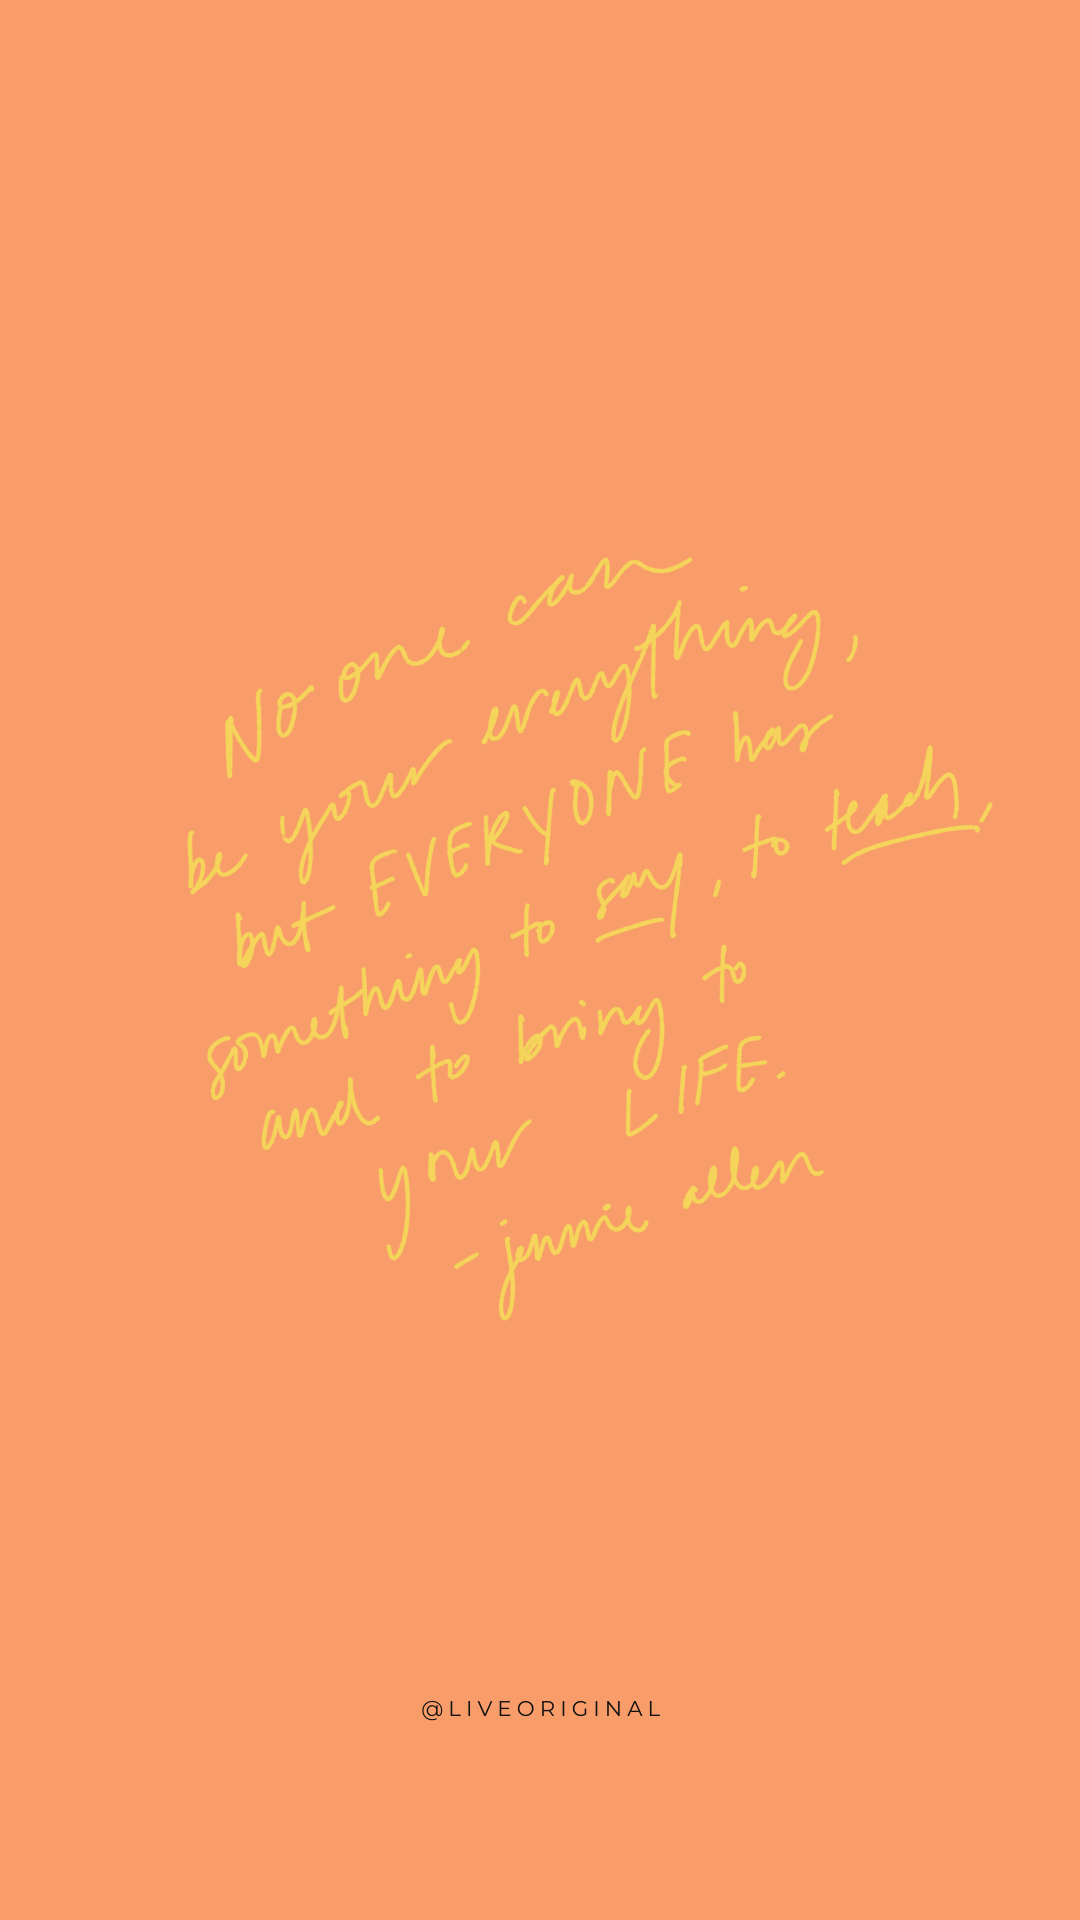 No one can
be your everything,
but EVERYONE has
something to say, to teach,
and to bring to
your LIFE.
- jennie allen
@LIVEORIGINAL